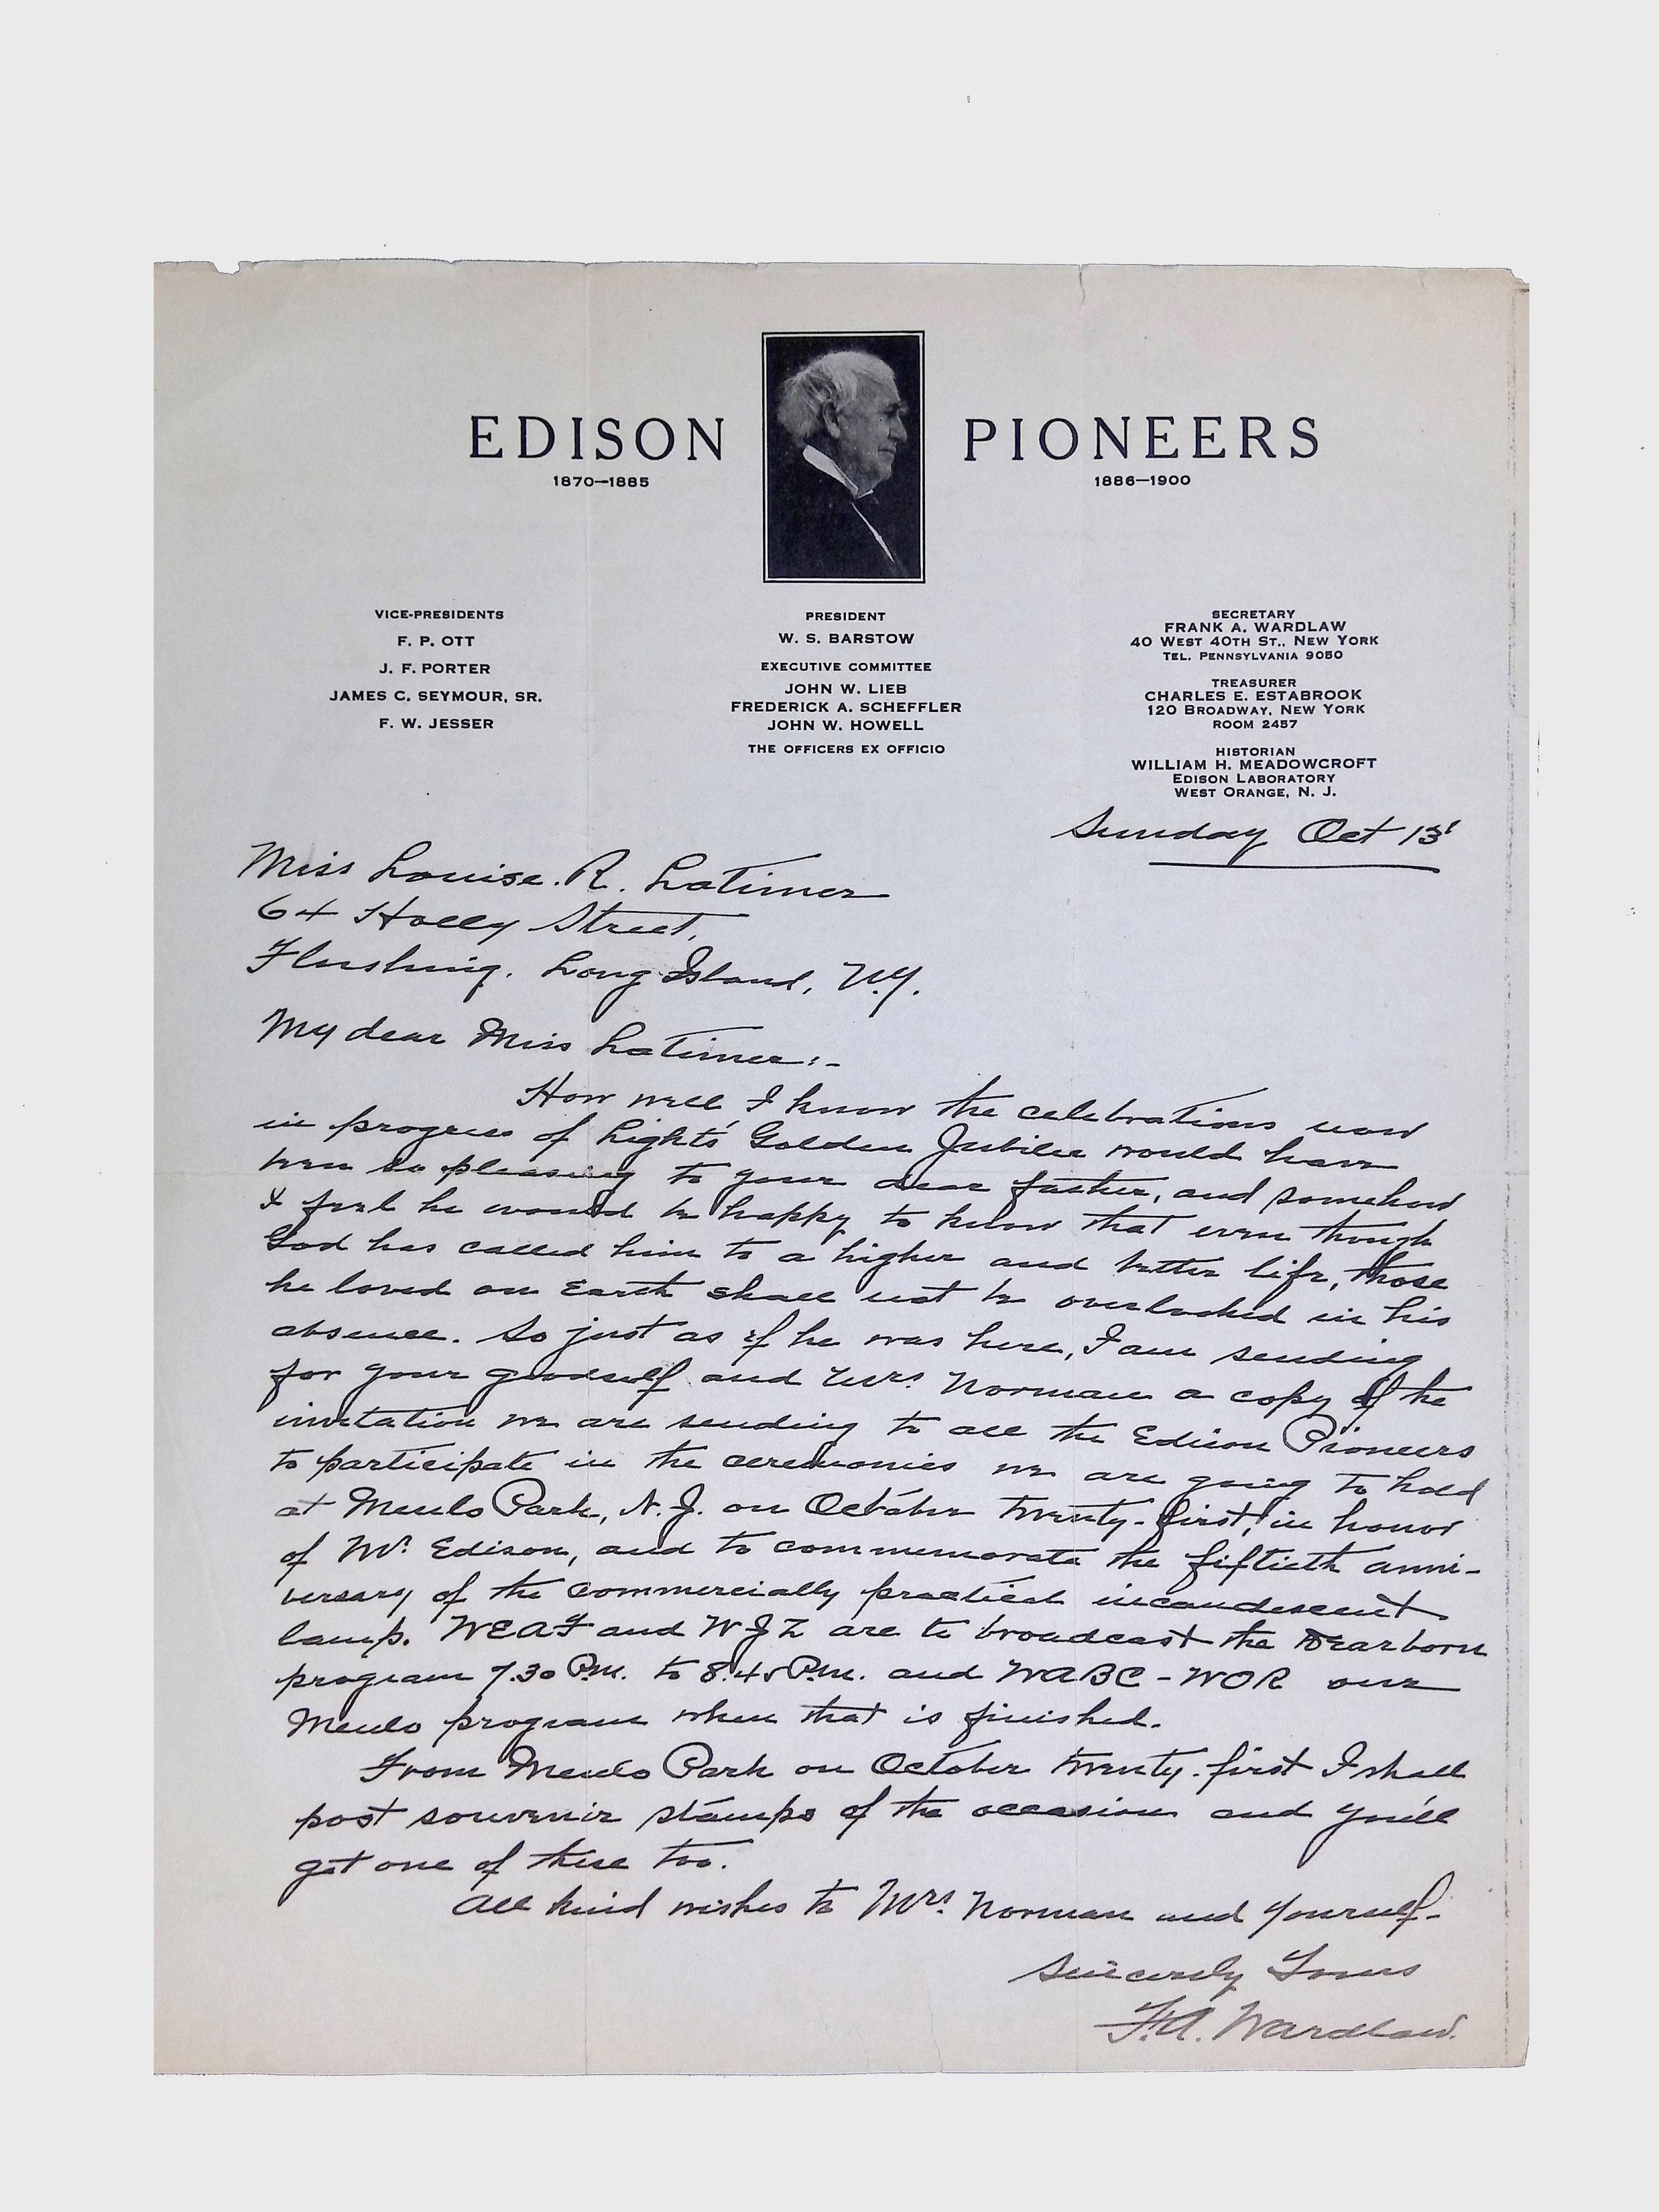 EDISON PIONEERS
1870—1885 1886—1900
VICE-PRESIDENTS
F. P. OTT
J. F. PORTER
JAMES C. SEYMOUR, SR.
F. W. JESSER
PRESIDENT
W. S. BARSTOW
EXECUTIVE COMMITTEE
JOHN W. LIEB
FREDERICK A. SCHEFFLER
JOHN W. HOWELL
THE OFFICERS EX OFFICIO
SECRETARY
FRANK A. WARDLAW
40 WEST 40TH ST., NEW YORK
TEL. PENNSYLVANIA 9050
TREASURER
CHARLES E. ESTABROOK
120 BROADWAY, NEW YORK
ROOM 2457
HISTORIAN
WILLIAM H. MEADOWCROFT
EDISON LABORATORY
WEST ORANGE, N. J.
Sunday Oct 13'
Miss Louise. R. Latimer
64 Holly Street,
Flushing. Long Island, N.Y.
My dear Miss Latimer:-
How well I know the celebrations now
in progress of Light's Golden Jubilee would have
been so pleasing to your dear father, and somehow
I feel he would be happy to know that even though
God has called him to a higher and better life, those
he loved on Earth shall not be overlooked in his
absence. So just as if he was here, I am sending
for your goodself and Mrs. Norman a copy of the
invitation we are sending to all the Edison Pioneers
to participate in the ceremonies we are going to hold
at Menlo Park, N. J. on October twenty-first, in honor
of Mr. Edison, and to commemorate the fiftieth anni-
versary of the commercially practical incandescent
lamp. WEAF and WJZ are to broadcast the Dearborn
program 7.30 P.M. to 8.45 P.M. and WABC - WOR our
Menlo program when that is finished.
From Menlo Park on October twenty-first I shall
post souvenir stamps of the occasion and you'll
get one of these too.
All kind wishes to Mrs. Norman and yourself-
Sincerely Yours
F.A. Wardlaw.